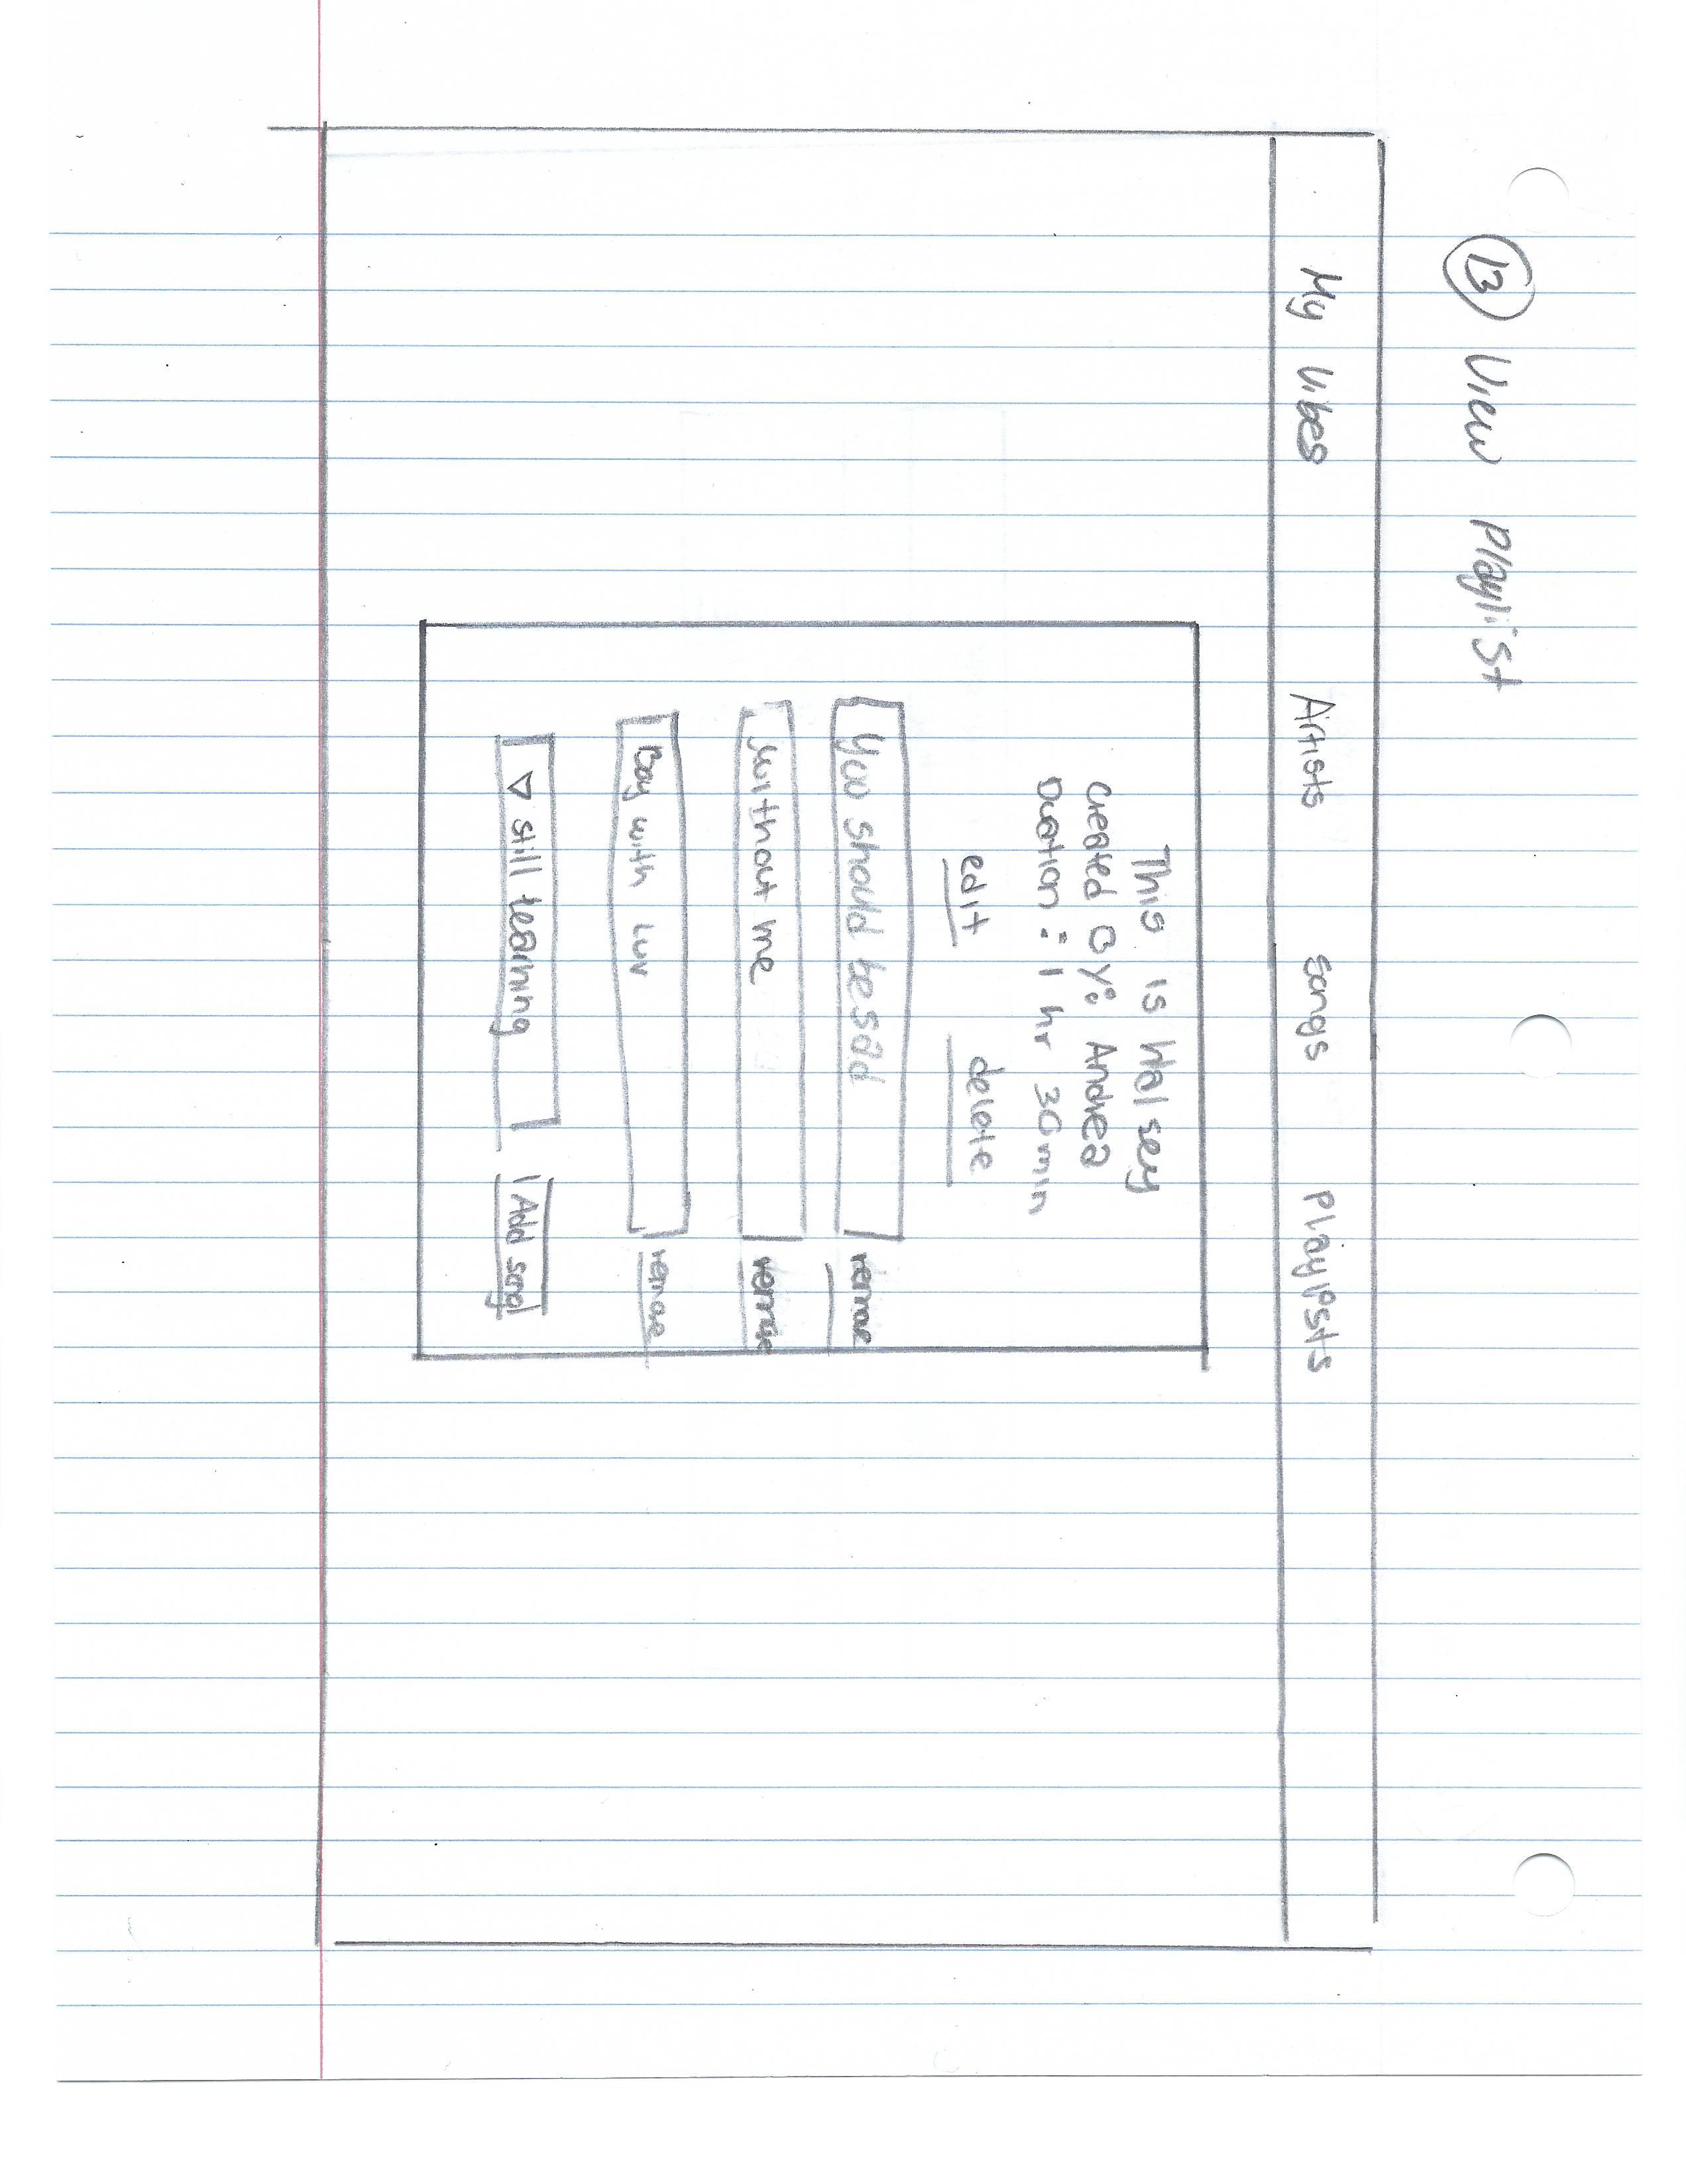 13 View Playlist
My Vibes Artists Songs Playlists
This is Halsey
Created By: Andrea
Duration: 1 hr 30min
edit delete
You should be sad remove
without me remove
Boy with Luv remove
▽ still learning Add song